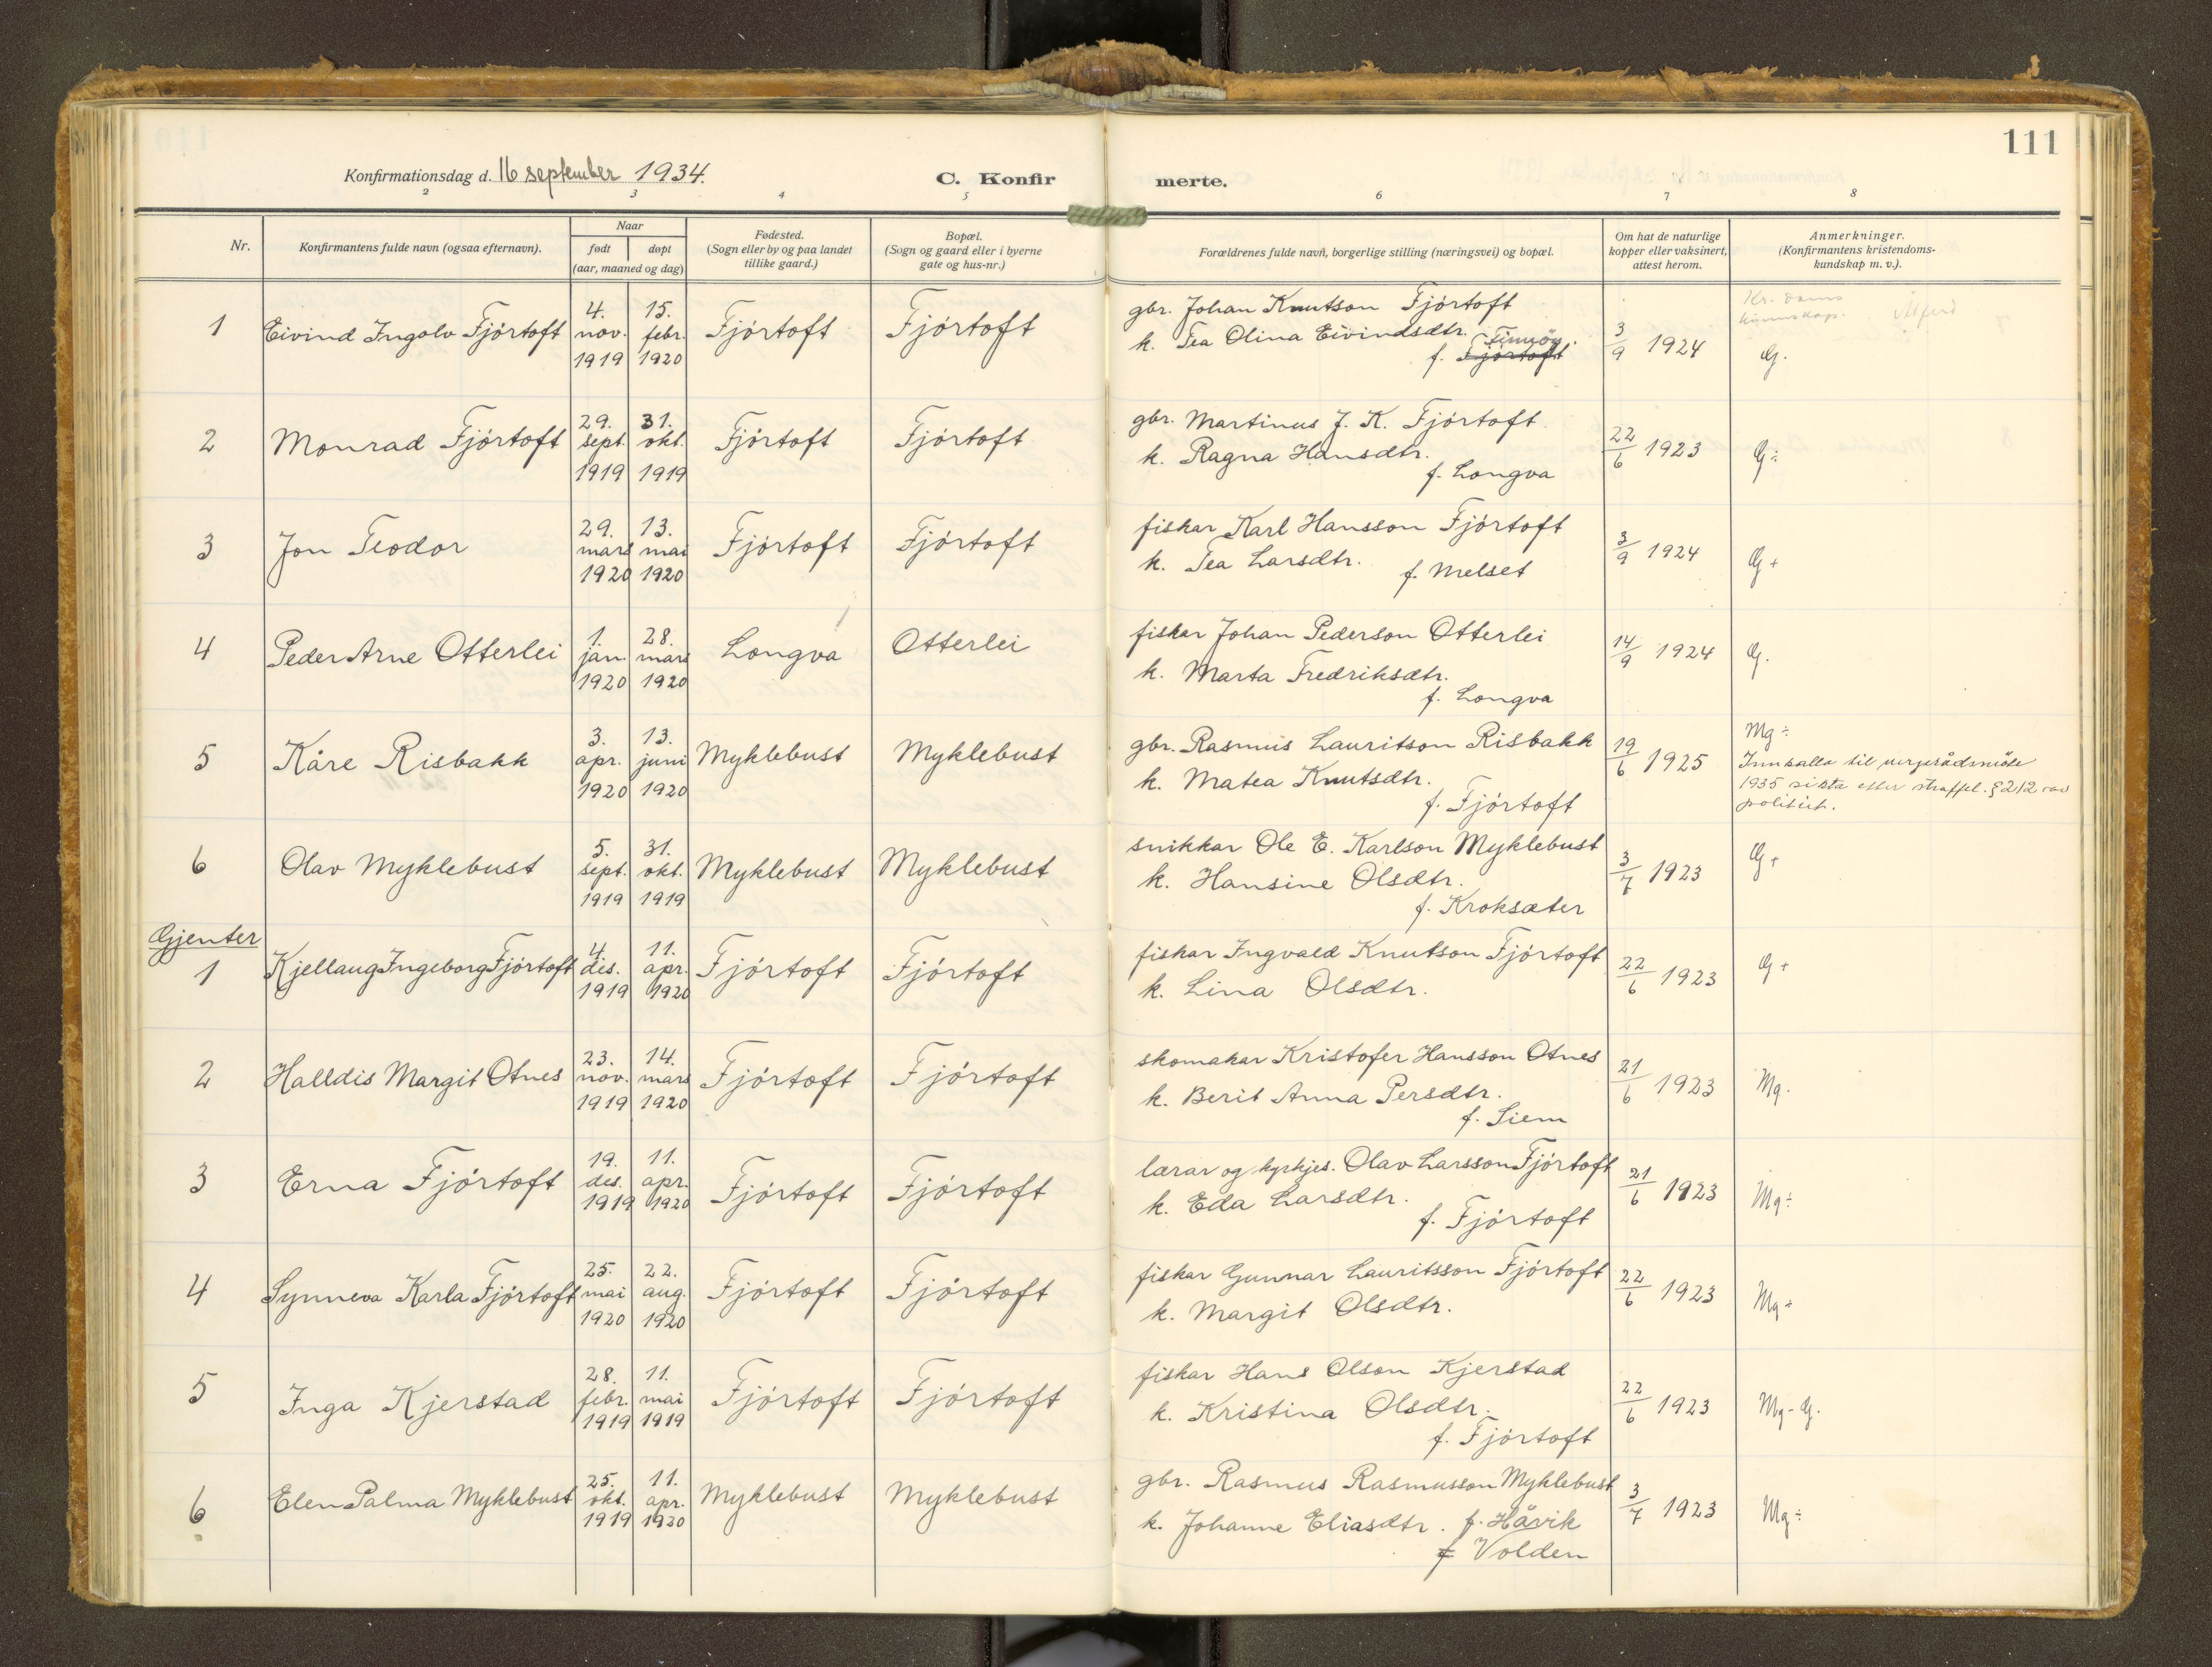 111
Konfirmationsdag d. 16 september 1934.
C. Konfirmerte.
2 3 4 5 6 7 8
Nr.
Konfirmantens fulde navn (ogsaa efternavn).
Naar
født døpt
(aar, maaned og dag)
Fødested.
(Sogn eller by og paa landet
tillike gaard.)
Bopæl.
(Sogn og gaard eller i byerne
gate og hus-nr.)
Forældrenes fulde navn, borgerlige stilling (næringsvei) og bopæl.
Om hat de naturlige
kopper eller vaksinert,
attest herom.
Anmerkninger.
(Konfirmantens kristendoms-
kundskap m. v.).
1 Eivind Ingolv Fjórtoft 4. nov. 1919 15. febr. 1920 Fjórtoft Fjórtoft
gbr. Johan Knutson Fjórtoft
k. Tea Olina Eivindsdtr. Finnøy.
f. Fjórtoft
3/9 1924
Kr. doms
kunnskap.
G.
2 Monrad Fjórtoft 29. sept. 1919 31. okt. 1919 Fjórtoft Fjórtoft
gbr. Martinus J. K. Fjórtoft
k. Ragna Hansdtr.
f. Longva
22/6 1923 G÷
3 Jon Teodor 29. mars 1920 13. mai 1920 Fjórtoft Fjórtoft
fiskar Karl Hansson Fjórtoft
k. Tea Larsdtr.
f. Melset
3/9 1924 G+
4 Peder Arne Otterlei 1. jan. 1920 28. mars 1920 Longva Otterlei
fiskar Johan Pederson Otterlei
k. Marta Fredriksdtr.
f. Longva
14/9 1924 G.
5 Kåre Risbakk 3. apr. 1920 13. juni 1920 Myklebust Myklebust
gbr. Rasmus Lauritson Risbakk
k. Matea Knutsdtr.
f. Fjórtoft
19/6 1925 Mg÷
Innkalla til verjerådsmöte
1935 sikta etter straffel. § 212 av
politiet.
6 Olav Myklebust 5. sept. 1919 31. okt. 1919 Myklebust Myklebust
snikkar Ole E. Karlson Myklebust
k. Hansine Olsdtr.
f. Kroksæter
3/7 1923 G+
Gjenter
1 Kjellaug Ingeborg Fjórtoft 4. des. 1919 11. apr. 1920 Fjórtoft Fjórtoft
fiskar Ingvald Knutson Fjórtoft
k. Lina Olsdtr.
22/6 1923 G+
2 Halldis Margit Otnes 23. nov. 1919 14. mars 1920 Fjórtoft Fjórtoft
skomakar Kristofer Hansson Otnes
k. Berit Anna Persdtr.
f. Siem
21/6 1923 Mg.
3 Erna Fjórtoft 19. des. 1919 11. apr. 1920 Fjórtoft Fjórtoft
lærar og kyrkjes. Olav Larsson Fjórtoft
k. Eda Larsdtr.
f. Fjórtoft
21/6 1923 Mg÷
4 Synneva Karla Fjórtoft 25. mai 1920 22. aug. 1920 Fjórtoft Fjórtoft
fiskar Gunnar Lauritsson Fjórtoft
k. Margit Olsdtr.
22/6 1923 Mg÷
5 Inga Kjerstad 28. febr. 1919 11. mai 1919 Fjórtoft Fjórtoft
fiskar Hans Olson Kjerstad
k. Kristina Olsdtr.
f. Fjórtoft
22/6 1923 Mg-G.
6 Elen Palma Myklebust 25. okt. 1919 11. apr. 1920 Myklebust Myklebust
gbr. Rasmus Rasmusson Myklebust
k. Johanne Eliasdtr. f. Håvik
f Volden
3/7 1923 Mg÷